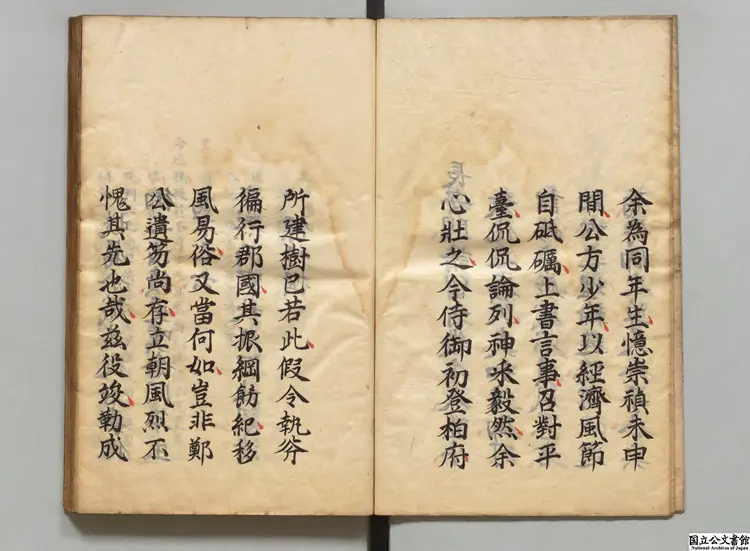 余為同年生憶崇禎未申
間公方少年以經濟風節
自砥礪上書言事召對平
臺侃侃論列神采毅然余
心壯之今侍御初登柏府
所建樹已若此假令執斧
徧行郡國其振綱飭紀移
風易俗又當何如豈非鄭
公遺笏尚存立朝風烈不
愧其先也哉茲役竣勒成
国立公文書館
National Archives of Japan